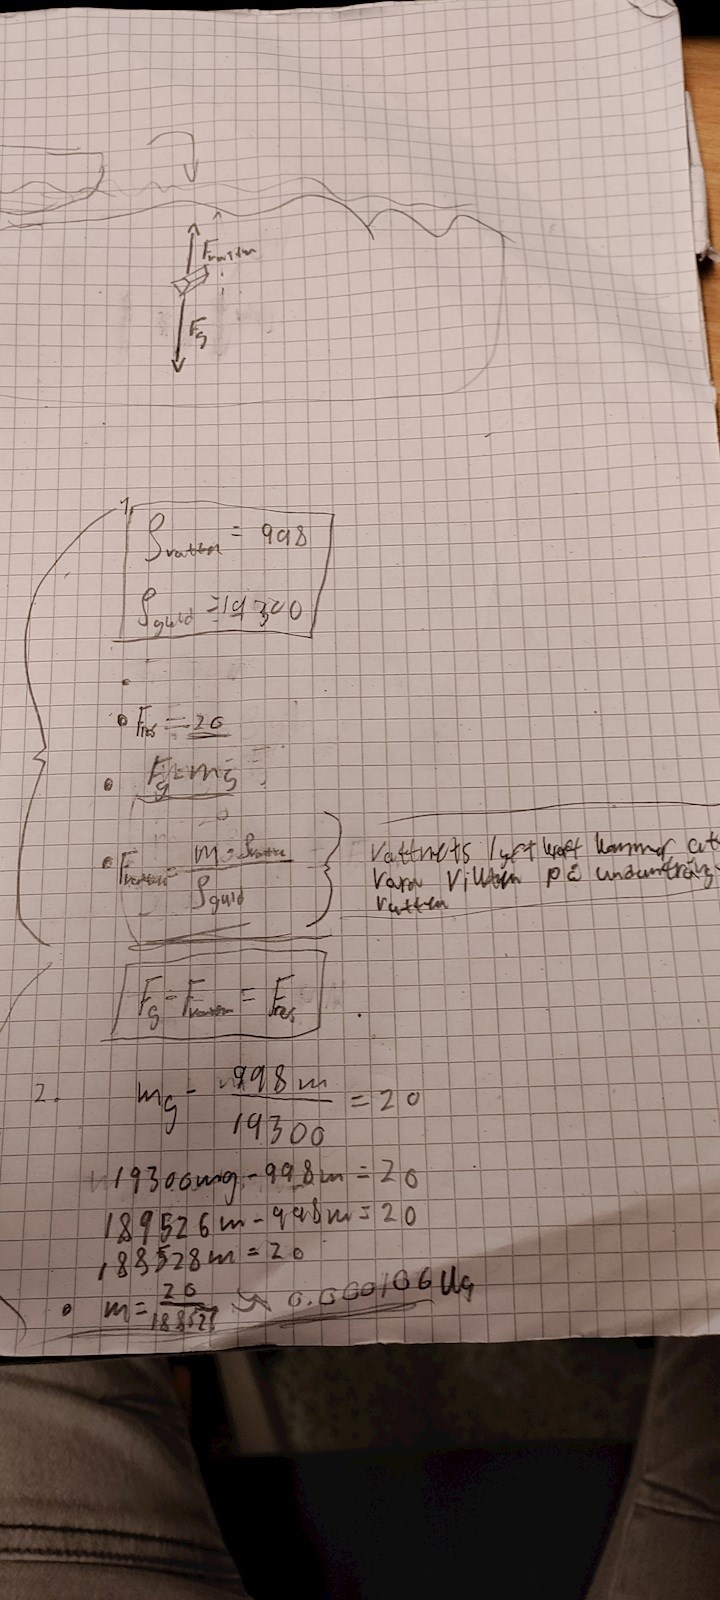 F_vatten
F_g
1.
ρ_vatten = 998
ρ_guld = 19300
• F_res = 20
• F_g = mg
• F_vatten = m · ρ_vatten / ρ_guld
Vattnets lyftkraft kommer att
vara vikten på undanträng
vatten
F_g - F_vatten = F_res
2. mg - 998m / 19300 = 20
19300mg - 998m = 20
189526m - 998m = 20
188528m = 20
• m = 20 / 188528 ≈ 0.000106 kg